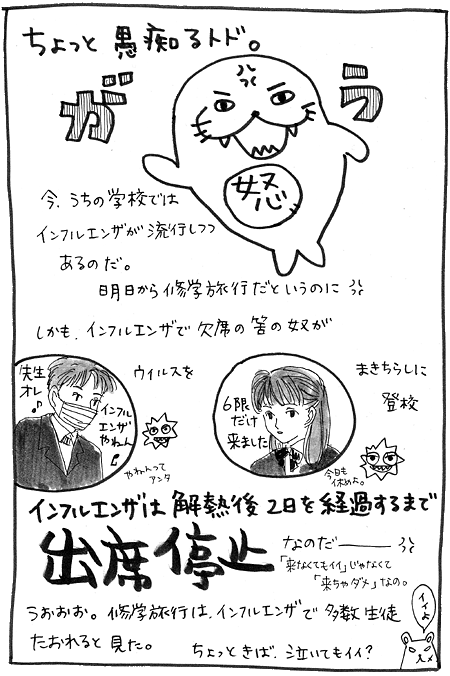 ちょっと愚痴るトド。
がう
怒
今、うちの学校では
インフルエンザが流行しつつ
あるのだ。
明日から修学旅行だというのに
しかも、インフルエンザで欠席の筈の奴が
先生
オレ♪
インフル
エンザ
やねん
♪
ウイルスを
やねんって
アンタ
6限
だけ
来ました
まきちらしに
登校
今日も
休めよ。
インフルエンザは解熱後2日を経過するまで
出席停止
なのだ――
「来なくてもイイ」じゃなくて
「来ちゃダメ」なの。
うおおお。修学旅行は、インフルエンザで多数生徒
たおれると見た。
ちょっときば、泣いてもイイ?
イイよ